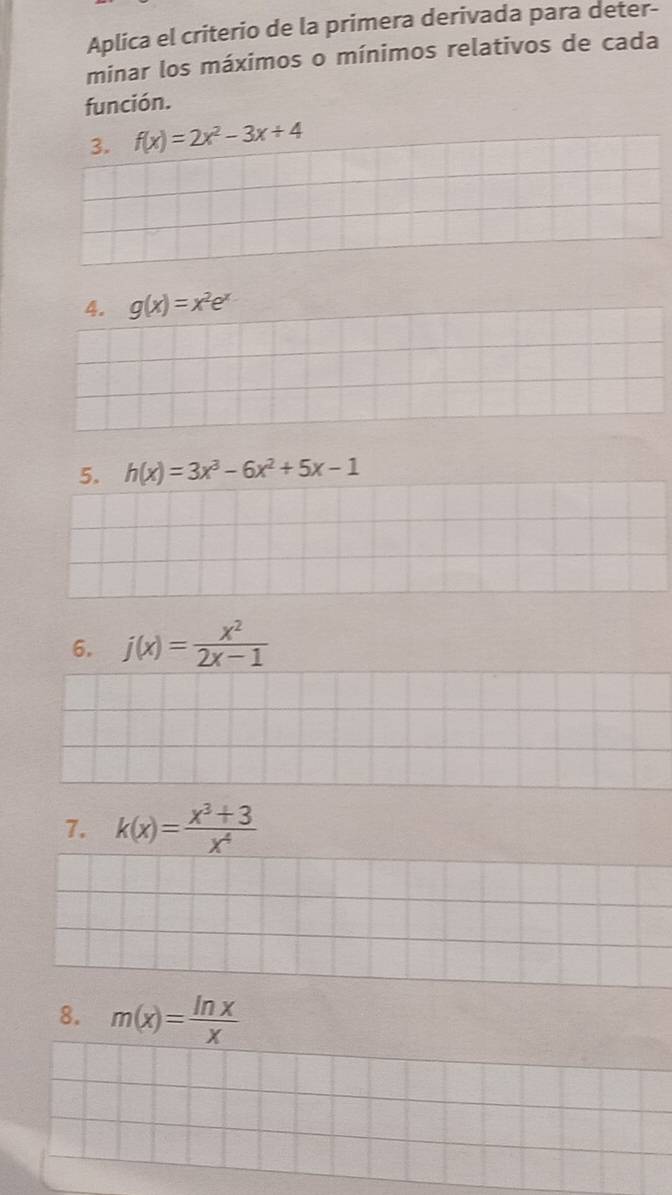 Aplica el criterio de la primera derivada para deter-
minar los máximos o mínimos relativos de cada
función.
3. f(x) = 2x² − 3x + 4
4. g(x) = x²eˣ
5. h(x) = 3x³ − 6x² + 5x − 1
6. j(x) = x² / (2x − 1)
7. k(x) = (x³ + 3) / x⁴
8. m(x) = ln x / x